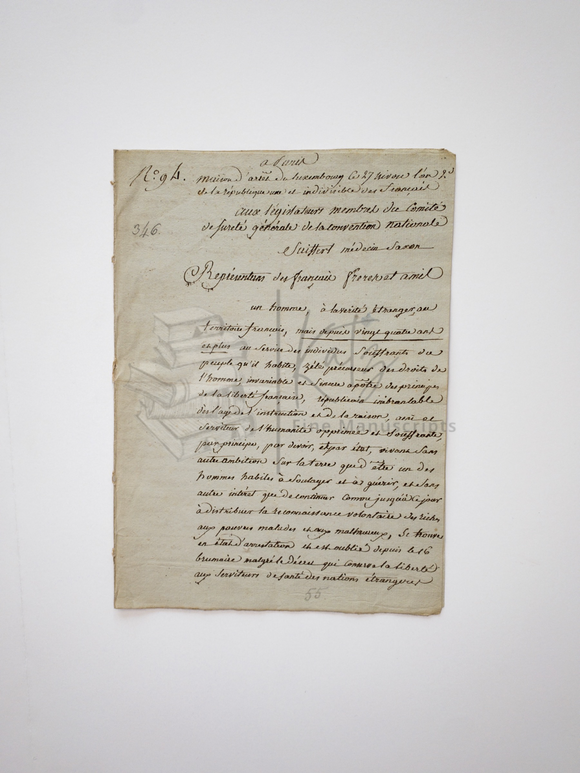 a Paris
N.º 94.
maison d'arrêt de Luxembourg ce 27 nivose l'an 2.d
de la république une et indivisible des français
346.
aux législateurs membres du Comité
de sureté générale de la convention nationale
Seiffert médecin Saxon
Représentans des français freres et amis
un homme, à la verité étranger, au
territoire français, mais depuis vingt quatre ans
et plus au service des individus souffrants du
peuple qu'il habite, zélé précurseur des droits de
l'homme invariable et sincere apôtre des principes
de la liberté française, républicain inébranlable
dès l'age de l'instruction et de la raison, ami et
serviteur de l'humanité opprimée et souffrante
par principe, par devoir, et par état, vivant sans
autre ambition sur la terre que d'être un des
hommes habiles à soulager et à guérir, et sans
autre intéret que de continuer comme jusqu'à ce jour
à distribuer la reconnaissance volontaire des riches
aux pauvres malades et aux malheureux, se trouve
en état d'arrestation et est oublié depuis le 16
brumaire malgré le décret qui conserve la liberté
aux serviteurs de santé des nations étrangeres,
55
Fine Manuscripts